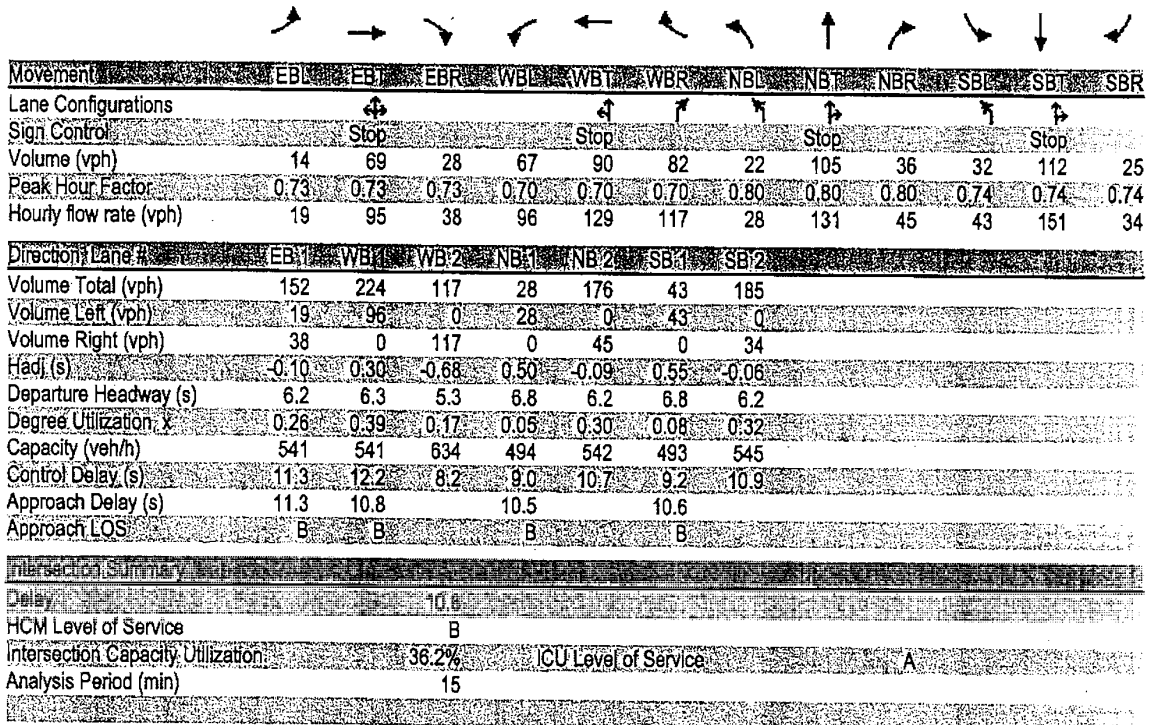 Movement EBL EBT EBR WBL WBT WBR NBL NBT NBR SBL SBT SBR
Lane Configurations
Sign Control Stop Stop Stop Stop
Volume (vph) 14 69 28 67 90 82 22 105 36 32 112 25
Peak Hour Factor 0.73 0.73 0.73 0.70 0.70 0.70 0.80 0.80 0.80 0.74 0.74 0.74
Hourly flow rate (vph) 19 95 38 96 129 117 28 131 45 43 151 34
Direction, Lane # EB 1 WB 1 WB 2 NB 1 NB 2 SB 1 SB 2
Volume Total (vph) 152 224 117 28 176 43 185
Volume Left (vph) 19 96 0 28 0 43 0
Volume Right (vph) 38 0 117 0 45 0 34
Hadj (s) -0.10 0.30 -0.68 0.50 -0.09 0.55 -0.06
Departure Headway (s) 6.2 6.3 5.3 6.8 6.2 6.8 6.2
Degree Utilization, x 0.26 0.39 0.17 0.05 0.30 0.08 0.32
Capacity (veh/h) 541 541 634 494 542 493 545
Control Delay (s) 11.3 12.2 8.2 9.0 10.7 9.2 10.9
Approach Delay (s) 11.3 10.8 10.5 10.6
Approach LOS B B B B
Intersection Summary
Delay
HCM Level of Service B
Intersection Capacity Utilization 36.2% ICU Level of Service A
Analysis Period (min) 15